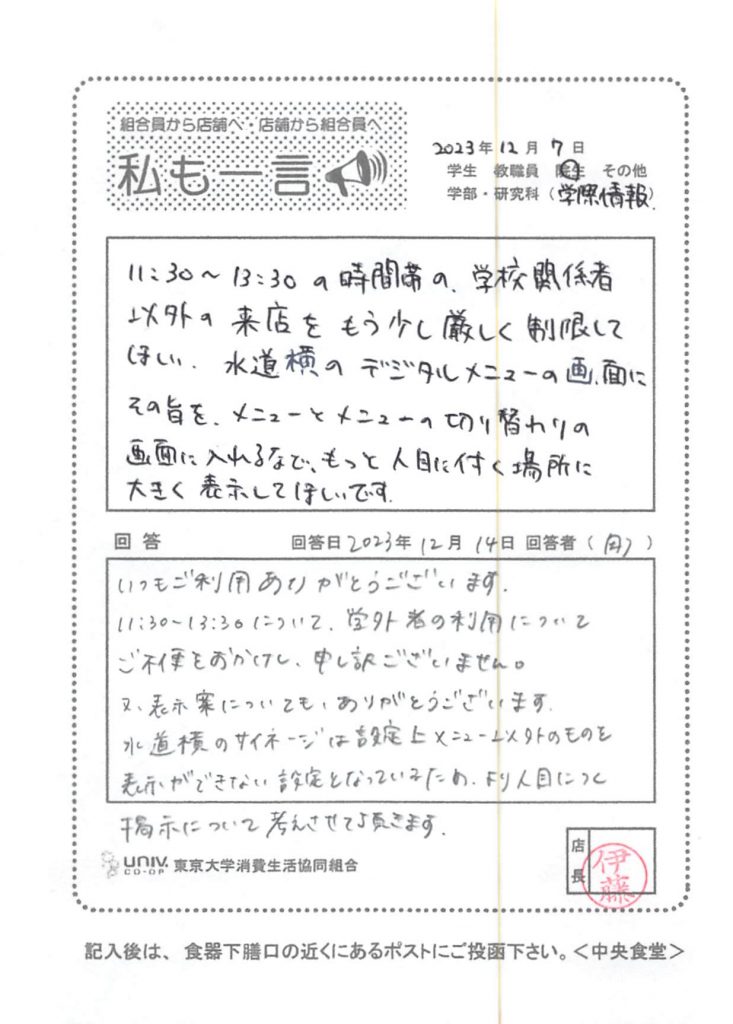 組合員から店舗へ・店舗から組合員へ
私も一言
2023年12月7日
学生 教職員 院生 その他
学部・研究科（学際情報）
11:30～13:30の時間帯の、学校関係者
以外の来店をもう少し厳しく制限して
ほしい。水道横のデジタルメニューの画面に
その旨を、メニューとメニューの切り替わりの
画面に入れるなど、もっと人目に付く場所に
大きく表示してほしいです。
回答 回答日2023年12月14日 回答者（ ）
いつもご利用ありがとうございます。
11:30～13:30について、学外者の利用について
ご不便をおかけし、申し訳ございません。
又、表示案についても、ありがとうございます。
水道横のサイネージは設定上メニュー以外のものを
表示ができない設定となっているため、より人目につく
掲示について考えさせて頂きます。
UNIV. CO-OP 東京大学消費生活協同組合
店長 伊藤
記入後は、食器下膳口の近くにあるポストにご投函下さい。＜中央食堂＞